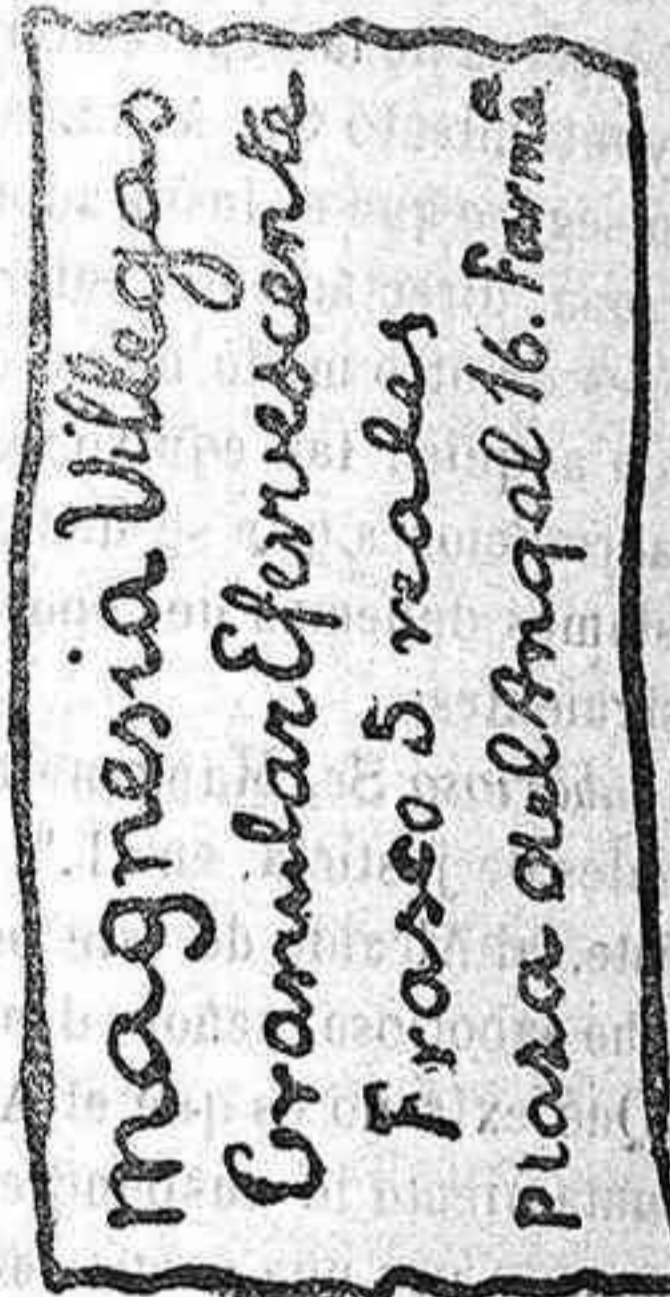 Magnesia Villegas
Granular Efervescente
Frasco 5 reales
Plaza del Angel 16. Farmª